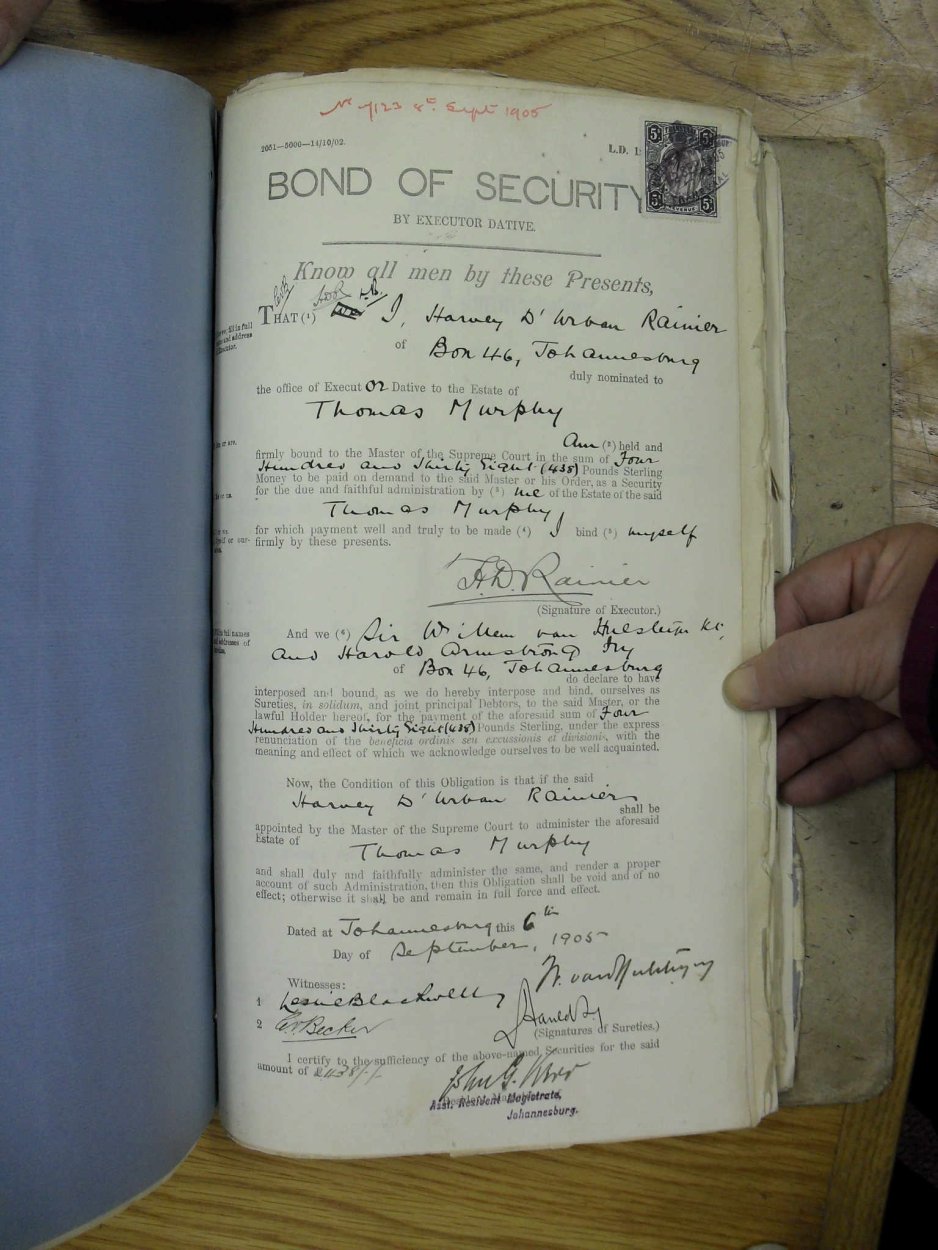 No 7123 8th Sept 1905
2051—5000—14/10/02.
L.D. 1
5s 5s
5s REVENUE 5s
BOND OF SECURITY
BY EXECUTOR DATIVE.
Know all men by these Presents,
THAT (1) I, Harvey D'Urban Rainier
of Box 46, Johannesburg
duly nominated to
the office of Executor Dative to the Estate of
Thomas Murphy
am (2) held and
firmly bound to the Master of the Supreme Court in the sum of Four
Hundred and Thirty Eight (438) Pounds Sterling
Money to be paid on demand to the said Master or his Order, as a Security
for the due and faithful administration by (3) me of the Estate of the said
Thomas Murphy
for which payment well and truly to be made (4) I bind (5) myself
firmly by these presents.
H.D. Rainier
(Signature of Executor.)
And we (6) Sir Willem van Hulsteijn Kt,
and Harold Armstrong Fry
of Box 46, Johannesburg
do declare to have
interposed and bound, as we do hereby interpose and bind, ourselves as
Sureties, in solidum, and joint principal Debtors, to the said Master, or the
lawful Holder hereof, for the payment of the aforesaid sum of Four
Hundred and Thirty Eight (438) Pounds Sterling, under the express
renunciation of the beneficia ordinis seu excussionis et divisionis, with the
meaning and effect of which we acknowledge ourselves to be well acquainted.
Now, the Condition of this Obligation is that if the said
Harvey D'Urban Rainier
shall be
appointed by the Master of the Supreme Court to administer the aforesaid
Estate of Thomas Murphy
and shall duly and faithfully administer the same, and render a proper
account of such Administration, then this Obligation shall be void and of no
effect; otherwise it shall be and remain in full force and effect.
Dated at Johannesburg this 6th
Day of September, 1905
Witnesses: W. van Hulsteijn
1 Leslie Blackwell
2 Becker
Harold Fry
(Signatures of Sureties.)
I certify to the sufficiency of the above-named Securities for the said
amount of £438/-/-
John G.
Asst. Resident Magistrate,
Johannesburg.